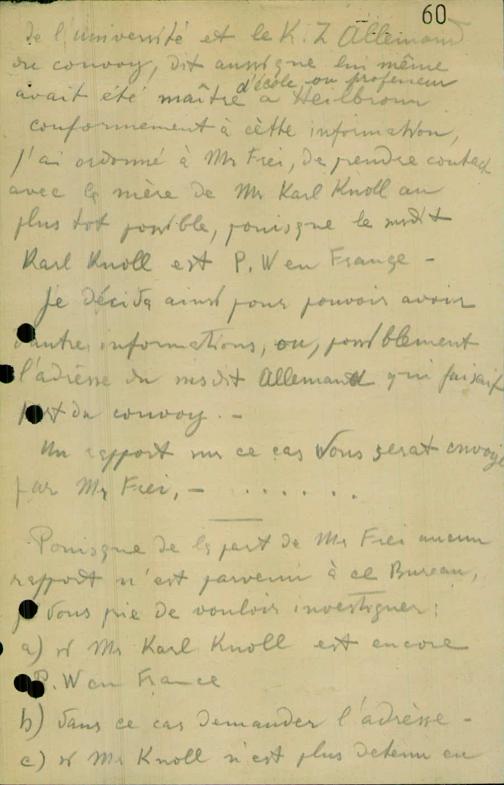 60
de l'université et le K. Z Allemand
du convoy, dit aussi que lui même
avait été maître d'école ou professeur a Heilbronn
conformement à cètte information,
j'ai ordonné à Mr Frei, de prendre contact
avec la mère de Mr Karl Knoll au
plus tot possible, puisque le susdit
Karl Knoll est P. W en France -
Je décida ainsi pour pouvoir avoir
d'autres informations, ou, possiblement
l'adrèsse du susdit Allemand qui faisait
part du convoy. -
Un rapport sur ce cas Vous serat envoyé
par Mr Frei, - . . . . . .
Pouisque de la part de Mr Frei aucun
rapport n'est parvenu à ce Bureau,
je Vous prie de vouloir investiguer:
a) si Mr Karl Knoll est encore
P. W en France
b) dans ce cas demander l'adrèsse -
c) si Mr Knoll n'est plus detenu en